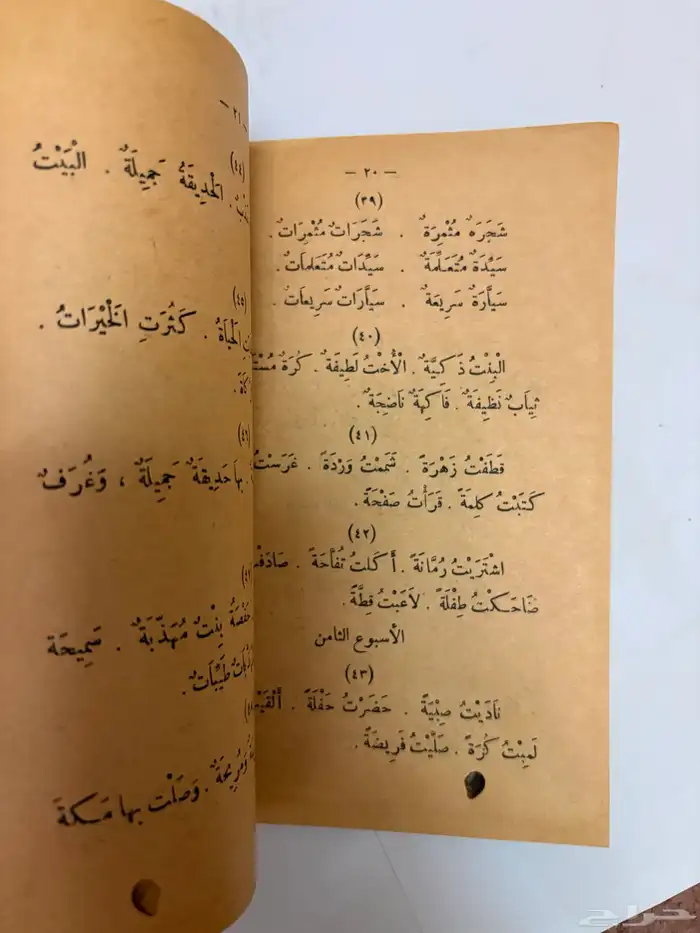 — ٢٠ —
(٣٩)
شَجَرَةٌ مُثْمِرَةٌ . شَجَرَاتٌ مُثْمِرَاتٌ .
سَيِّدَةٌ مُتَعَلِّمَةٌ . سَيِّدَاتٌ مُتَعَلِّمَاتٌ .
سَيَّارَةٌ سَرِيعَةٌ . سَيَّارَاتٌ سَرِيعَاتٌ .
(٤٠)
الْبِنْتُ ذَكِيَّةٌ . الْأُخْتُ لَطِيفَةٌ . كُرَةٌ
ثِيَابٌ نَظِيفَةٌ . فَاكِهَةٌ نَاضِجَةٌ .
(٤١)
قَطَفْتُ زَهْرَةً . شَمَمْتُ وَرْدَةً . غَرَسْتُ
كَتَبْتُ كَلِمَةً . قَرَأْتُ صَفْحَةً .
(٤٢)
اشْتَرَيْتُ رُمَّانَةً . أَكَلْتُ تُفَّاحَةً .
ضَاحَكْتُ طِفْلَةً . لَاعَبْتُ قِطَّةً .
الأسبوع الثامن
(٤٣)
نَادَيْتُ صَبِيَّةً . حَضَرْتُ حَفْلَةً .
لَعِبْتُ كُرَةً . صَلَّيْتُ فَرِيضَةً .
— ٢١ —
(٤٤)
الْحَدِيقَةُ جَمِيلَةٌ . الْبَيْتُ
(٤٥)
الْحَيَاةُ . كَثُرَتِ الْخَيْرَاتُ .
بِهَا حَدِيقَةٌ جَمِيلَةٌ ، وَغُرَفٌ
بِنْتٌ مُهَذَّبَةٌ . سَمِيحَة
طَيِّبَاتٌ .
وَمُرِيحَةٌ . وَصَلْت بها مَكة
حراج